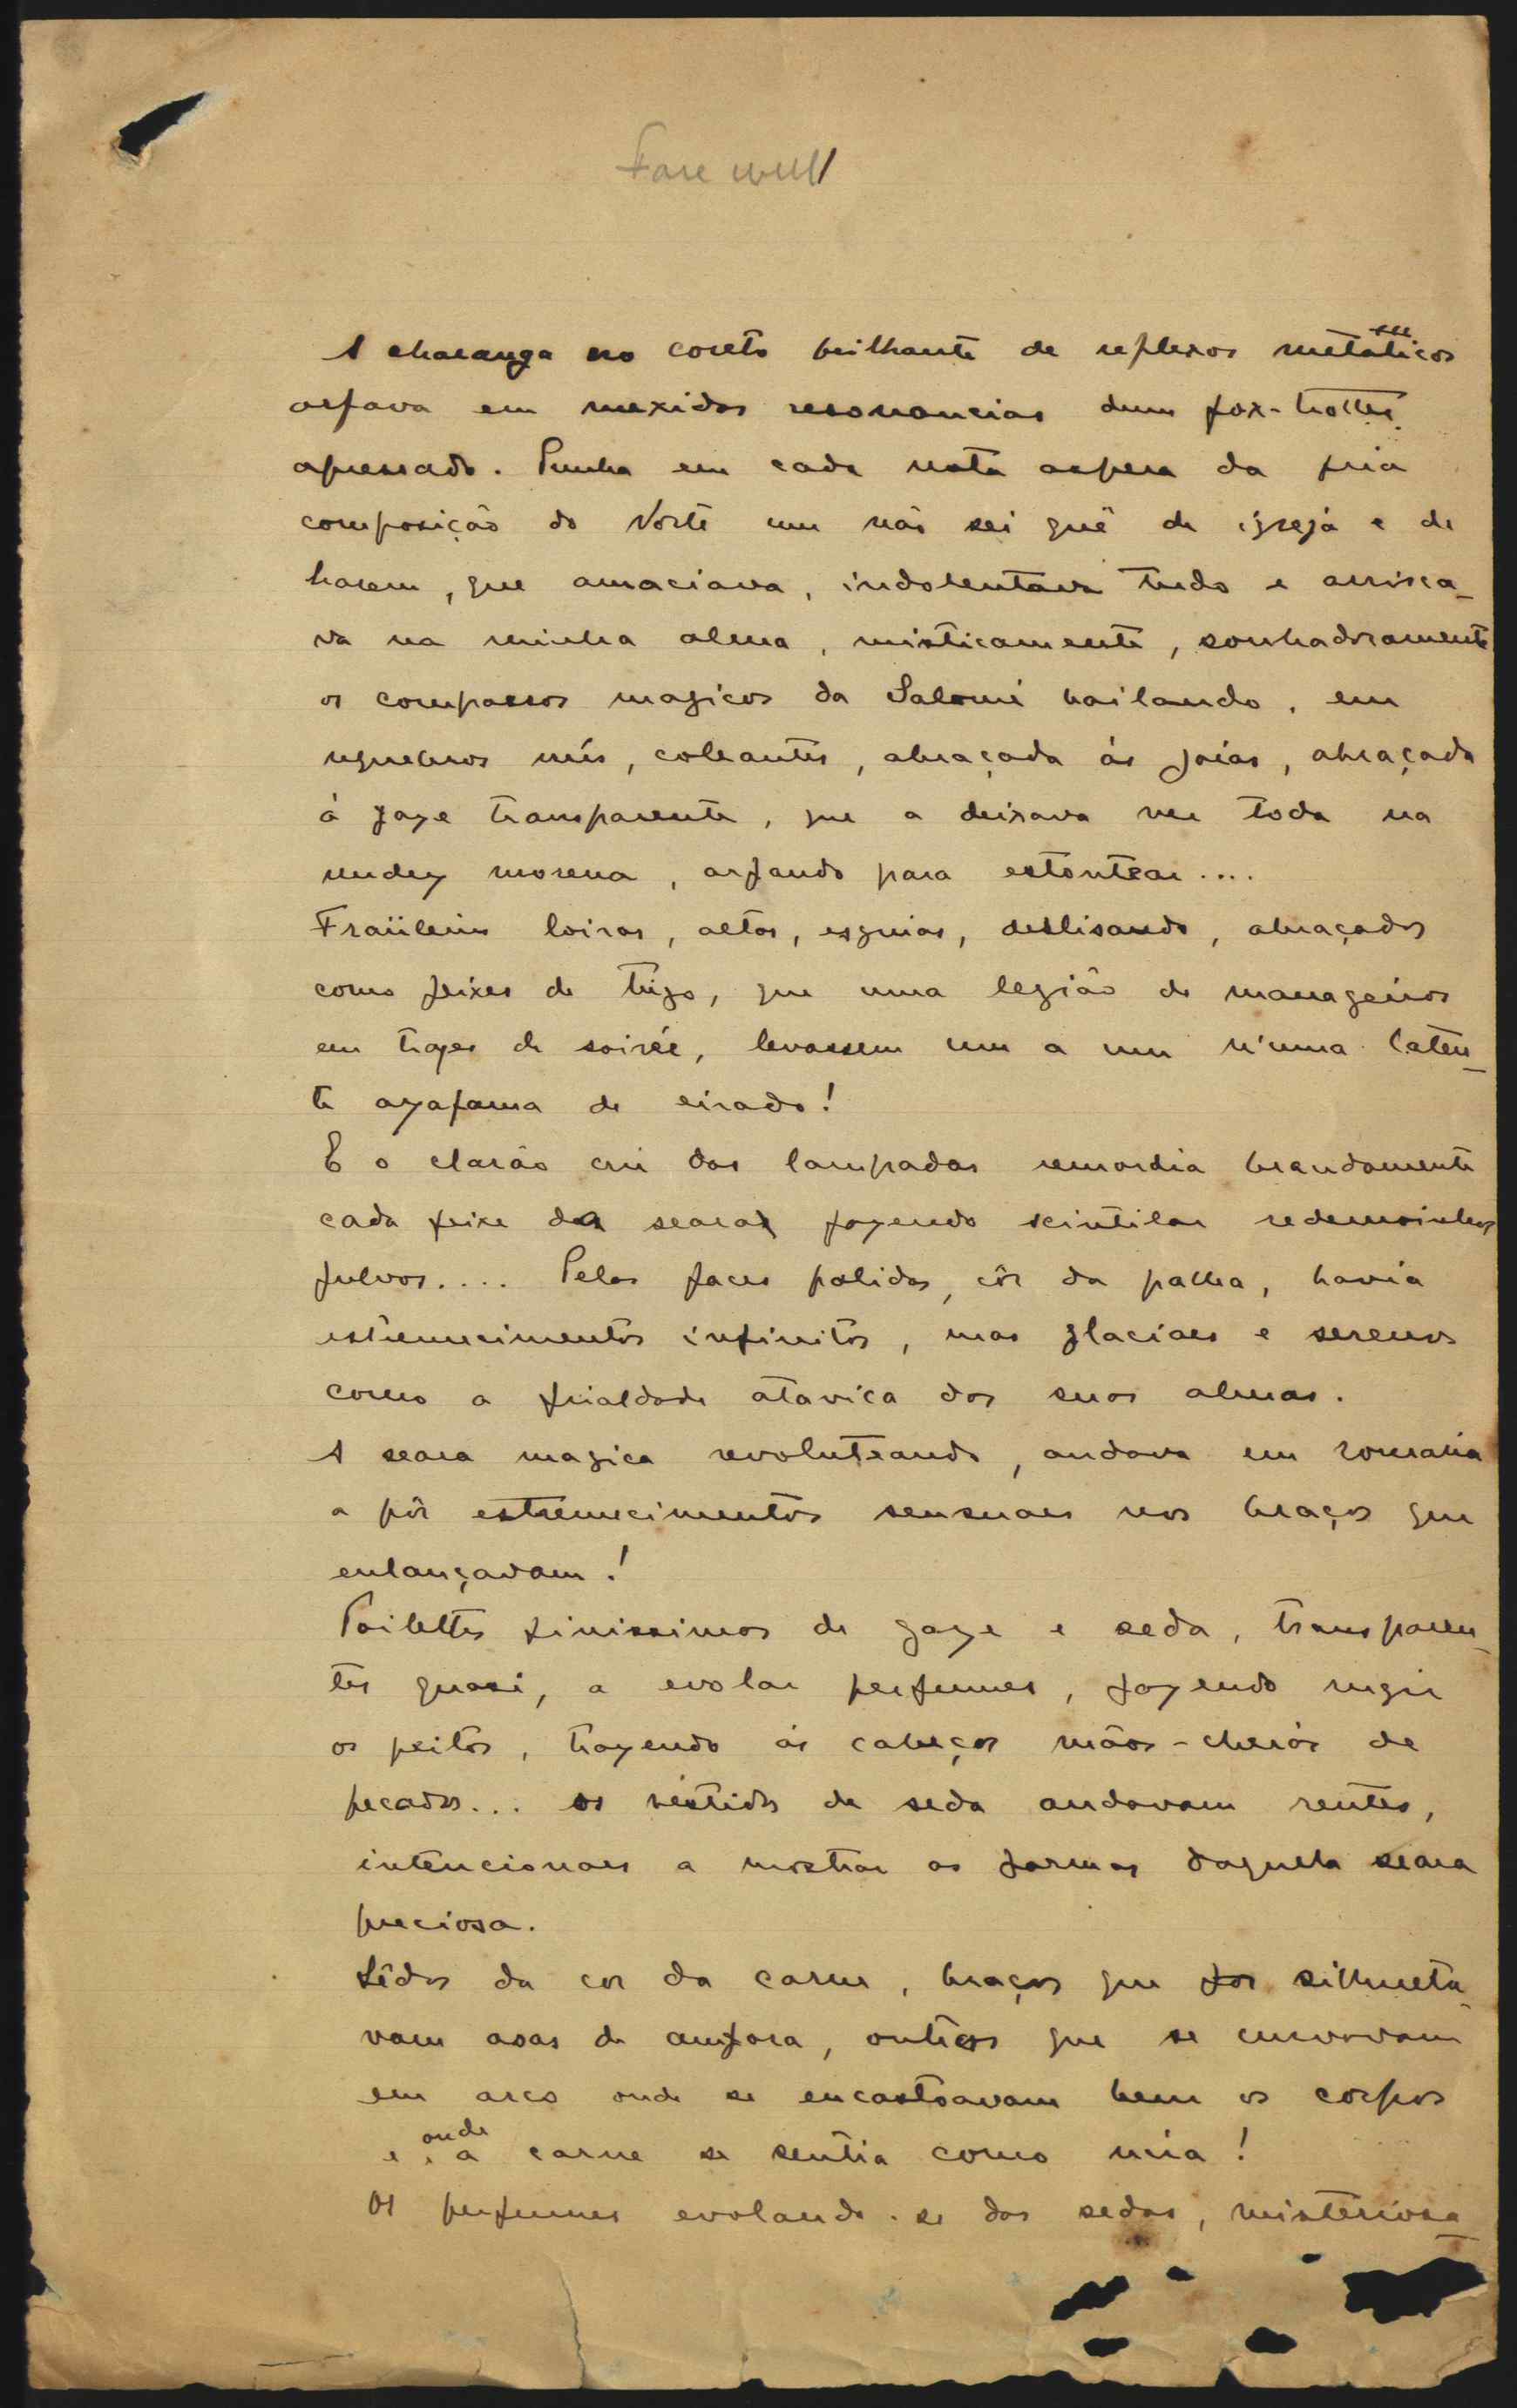 Fare well
A charanga no coreto brilhante de reflexos metalicos
arfava em mexidas resonancias dum fox-trotter
apressado. Punha em cada nota aspera da fria
composição do Norte um não sei quê de igreja e de
harem, que amaciava, indolentava tudo e arrisca-
va na minha alma, misticamente, sonhadoramente
os compassos magicos da Salomé bailando, em
requebros nús, coleantes, abraçada ás joias, abraçada
á gaze transparente, que a deixava ver toda na
nudez morena, arfando para estontear....
Fraülein loiras, altas, esguias, deslisando, abraçados
como feixes de trigo, que uma legião de manageiros
em trajes de soirée, levassem um a um n'uma laten-
te azafama de eirado!
E o clarão cru das lampadas remordia brandamente
cada feixe da seara fazendo scintilar redemoinhos
fulvos.... Pelas faces palidas, côr da palha, havia
estremecimentos infinitos, mas glaciaes e serenos
como a frialdade atavica das suas almas.
A seara magica revoluteando, andava em romaria
a pôr estremecimentos sensuaes nos braços que
enlançavam!
Toilettes finissimas de gaze e seda, transparen-
tes quasi, a evolar perfumes, fazendo rugir
os peitos, trazendo ás cabeças mãos-cheias de
pecados... os vestidos de seda andavam rentes,
intencionaes a mostrar as formas daquela seara
preciosa.
Sêdas da cor da carne, braços que silhueta-
vam asas de amfora, outros que se curvavam
em arco onde se encastoavam bem os corpos
e onde a carne se sentia como nua!
Os perfumes evolando-se das sedas, misteriosa-